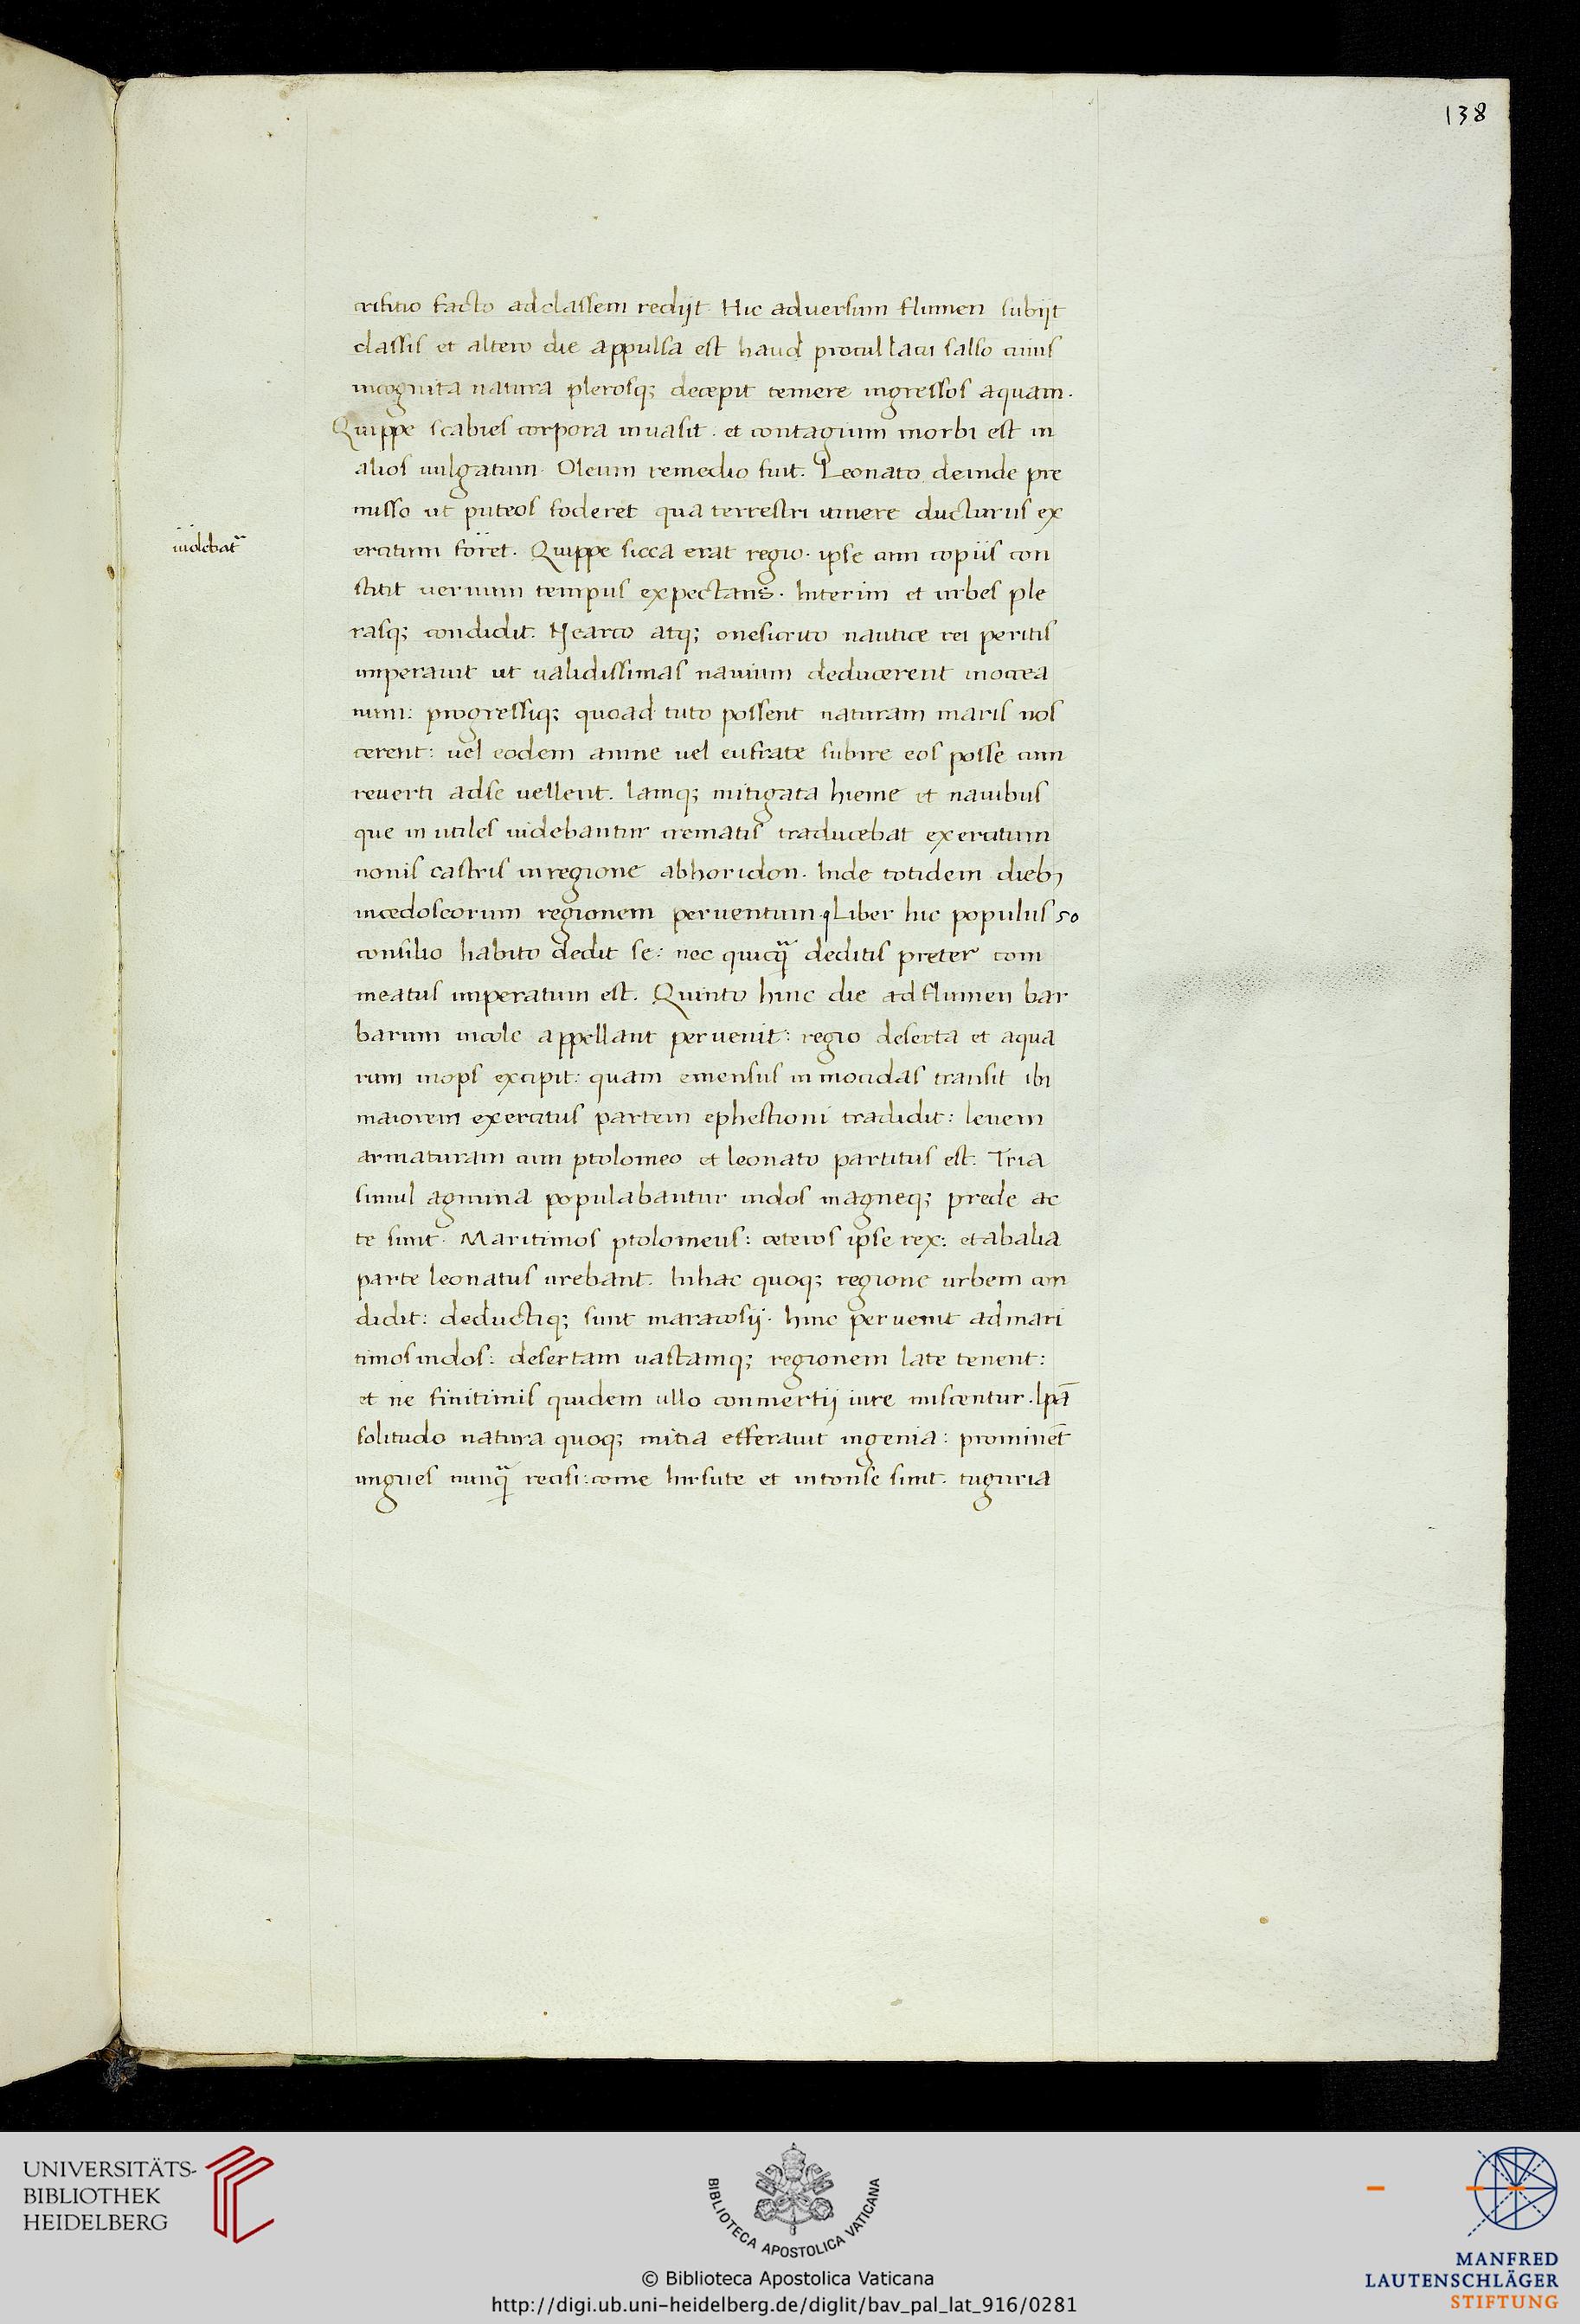 138
crifitio facto adclassem redijt. Hic adversum flumen subijt
classis et altero die appulsa est haud procul lacu salso cuius
incognita natura plerosq; decepit temere ingressos aquam.
Quippe scabies corpora invasit. et contagium morbi est in
alios vulgatum. Oleum remedio fuit. Leonato deinde pre
misso ut puteos foderet qua terrestri itinere ducturus ex
videbat̄
ercitum foret. Quippe sicca erat regio. ipse cum copiis con
stitit vernum tempus expectans. Interim et urbes ple
rasq; condidit. Nearco atq; onesicrito nautice rei peritis
imperavit ut validissimas navium deducerent inocea
num: progressiq; quoad tuto possent naturam maris nos
cerent: vel eodem amne vel eufrate subire eos posse cum
reverti adse vellent. Iamq; mitigata hieme et navibus
que in utiles videbantur crematis traducebat exercitum
nonis castris inregione abhoridon. Inde totidem dieb;
incedoseorum regionem perventum. Liber hic populus so
consilio habito dedit se: nec quicq̄ deditis preter com
meatus imperatum est. Quinto hinc die ad flumen bar
barum incole appellant pervenit: regio deserta et aqua
rum inops excipit: quam emensus in mocidas transit ibi
maiorem exercitus partem ephestioni tradidit: levem
armaturam cum ptolomeo et leonato partitus est. Tria
simul agmina populabantur indos magneq; prede ac
te sunt. Maritimos ptolomeus: ceteros ipse rex: et abalia
parte leonatus urebant. Inhac quoq; regione urbem con
didit: deductiq; sunt maracosij. hinc pervenit admari
timos indos: desertam vastamq; regionem late tenent:
et ne finitimis quidem ullo conmertij iure miscentur. Ipā
solitudo natura quoq; mitia efferavit ingenia: prominēt
ungues nunq̄ recisi: come hirsute et intonse sunt. tuguria
UNIVERSITÄTS-
BIBLIOTHEK
HEIDELBERG
BIBLIOTECA APOSTOLICA VATICANA
© Biblioteca Apostolica Vaticana
http://digi.ub.uni-heidelberg.de/diglit/bav_pal_lat_916/0281
MANFRED
LAUTENSCHLÄGER
STIFTUNG